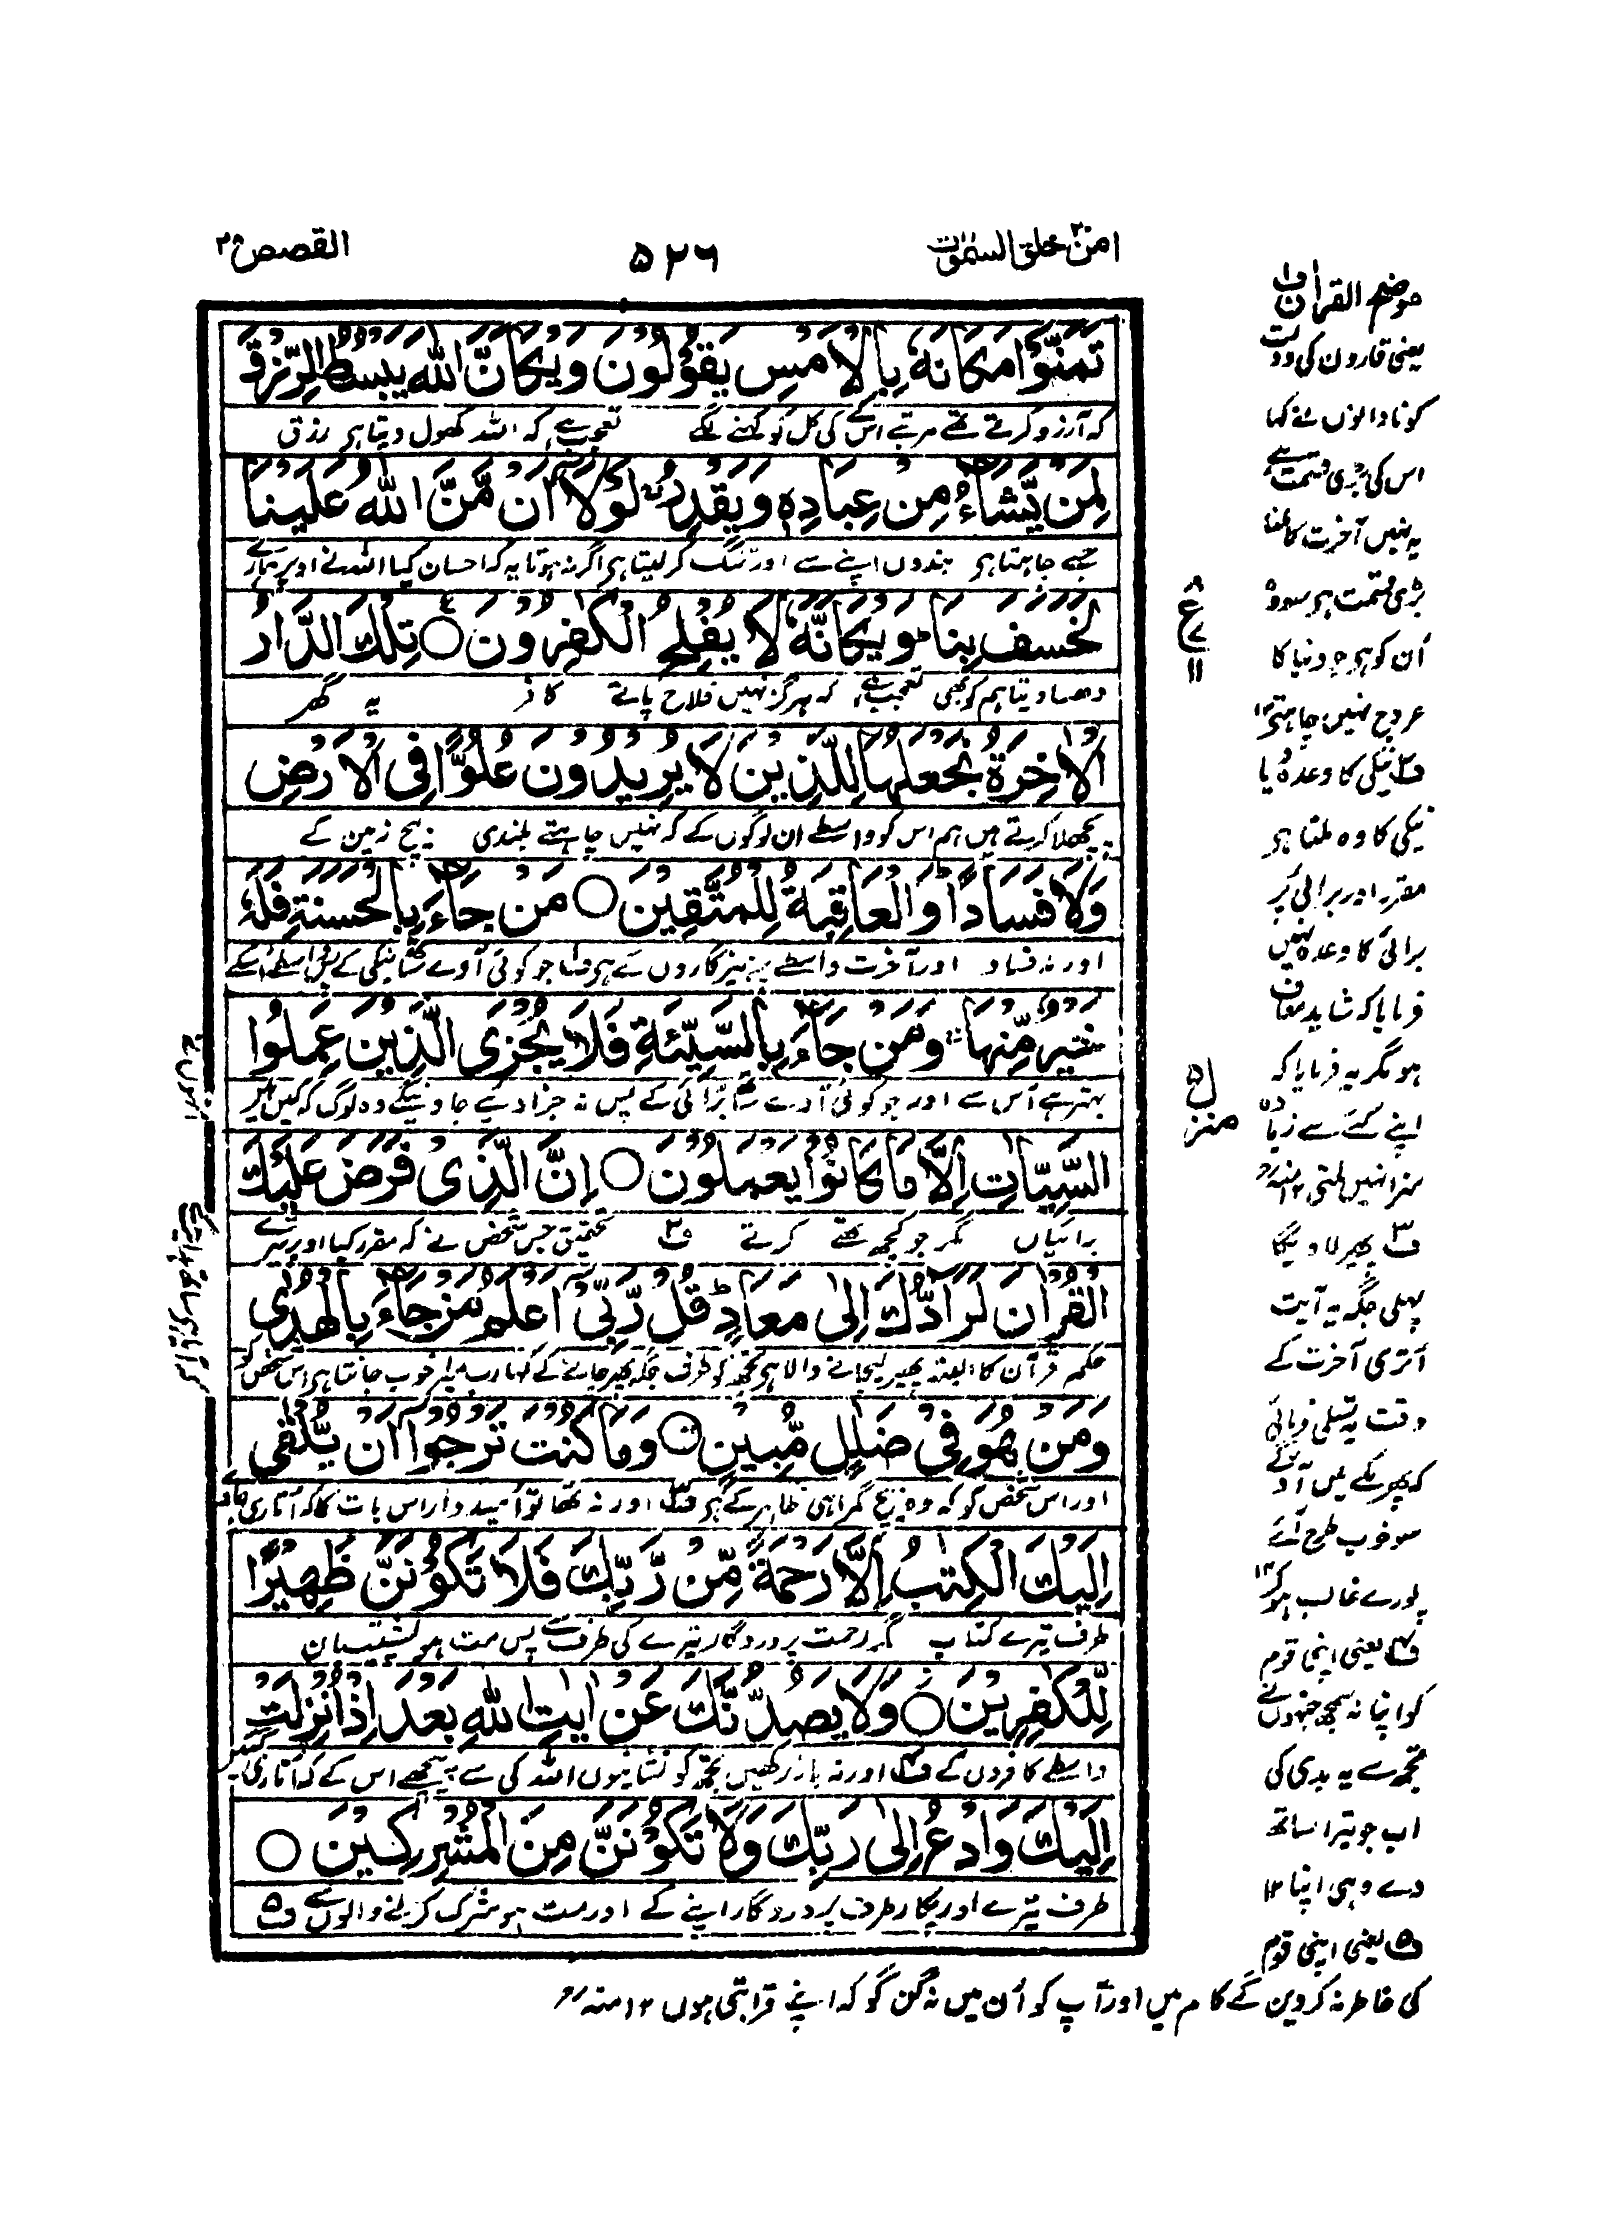 امن خلق السمٰوٰت ٢٠
٥٢٦
القصص ٢٨
تَمَنَّوْا مَكَانَهٗ بِالْاَمْسِ يَقُوْلُوْنَ وَيْكَاَنَّ اللّٰهَ يَبْسُطُ الرِّزْقَ
کہ آرزو کرتے تھے مرتبے اس کے کی کل کو کہنے لگے تعجب ہے کہ اللہ کھول دیتا ہی رزق
لِمَنْ يَّشَآءُ مِنْ عِبَادِهٖ وَيَقْدِرُ ۚ لَوْلَآ اَنْ مَّنَّ اللّٰهُ عَلَيْنَا
جسے چاہتا ہی بندوں اپنے سے اور تنگ کر لیتا ہی اگر نہ ہوتا یہ کہ احسان کیا اللہ نے اوپر ہمارے
لَخَسَفَ بِنَا ؕ وَيْكَاَنَّهٗ لَا يُفْلِحُ الْكٰفِرُوْنَ ○ تِلْكَ الدَّارُ
دھسا دیتا ہم کو بھی تعجب ہے کہ ہرگز نہیں فلاح پاتے کافر یہ گھر
الْاٰخِرَةُ نَجْعَلُهَا لِلَّذِيْنَ لَا يُرِيْدُوْنَ عُلُوًّا فِى الْاَرْضِ
پچھلا کرتے ہیں ہم اس کو واسطے ان لوگوں کے کہ نہیں چاہتے بلندی بیچ زمین کے
وَلَا فَسَادًا ؕ وَالْعَاقِبَةُ لِلْمُتَّقِيْنَ ○ مَنْ جَآءَ بِالْحَسَنَةِ فَلَهٗ
اور نہ فساد اور آخرت واسطے پرہیزگاروں کے ہی ف١ جو کوئی آوے ساتھ نیکی کے پس واسطے اسکے
خَيْرٌ مِّنْهَا ۚ وَمَنْ جَآءَ بِالسَّيِّئَةِ فَلَا يُجْزَى الَّذِيْنَ عَمِلُوا
بہتر ہے اس سے اور جو کوئی آوے ساتھ برائی کے پس نہ جزا دیے جاوینگے وہ لوگ کہ کیں ہیں
السَّيِّاٰتِ اِلَّا مَا كَانُوْا يَعْمَلُوْنَ ○ اِنَّ الَّذِىْ فَرَضَ عَلَيْكَ
برائیاں مگر جو کچھ تھے کرتے ف٢ تحقیق جس شخص نے کہ مقرر کیا اوپر تیرے
الْقُرْاٰنَ لَرَآدُّكَ اِلٰى مَعَادٍ ؕ قُلْ رَّبِّىْٓ اَعْلَمُ مَنْ جَآءَ بِالْهُدٰى
حکم قرآن کا البتہ پھیر لیجانے والا ہی تجھ کو طرف جگہ پھر جانے کے کہہ رب میرا خوب جانتا ہی اس شخص کو
وَمَنْ هُوَ فِىْ ضَلٰلٍ مُّبِيْنٍ ○ وَمَا كُنْتَ تَرْجُوْٓا اَنْ يُّلْقٰٓى
اور اس شخص کو کہ وہ بیچ گمراہی ظاہر کے ہی ف٣ اور نہ تھا تو امیدوار اس بات کا کہ اتاری جاوے
اِلَيْكَ الْكِتٰبُ اِلَّا رَحْمَةً مِّنْ رَّبِّكَ فَلَا تَكُوْنَنَّ ظَهِيْرًا
طرف تیرے کتاب مگر رحمت پروردگار تیرے کی طرف سے پس مت ہو پشتیبان
لِّلْكٰفِرِيْنَ ○ وَلَا يَصُدُّنَّكَ عَنْ اٰيٰتِ اللّٰهِ بَعْدَ اِذْ اُنْزِلَتْ
واسطے کافروں کے ف٤ اور نہ باز رکھیں تجھ کو نشانیوں اللہ کی سے پیچھے اس کے کہ اتاری گئیں
اِلَيْكَ وَادْعُ اِلٰى رَبِّكَ وَلَا تَكُوْنَنَّ مِنَ الْمُشْرِكِيْنَ ○
طرف تیرے اور پکار طرف پروردگار اپنے کے اور مت ہو شرک کرنے والوں سے ف٥
ع
١١
منزل ٥
موضح القرآن
ف١ یعنی قارون کی دولت
کو نادانوں نے کہا
اس کی بڑی قسمت ہے
یہ نہیں آخرت کا ملنا
بڑی قسمت ہی سو وہ
اُن کو ہی جو دنیا کا
عروج نہیں چاہتے ١٢
ف٢ نیکی کا وعدہ یا
نیکی کا وہ ملتا ہی
مقرر اور برائی پر
برائی کا وعدہ نہیں
فرمایا کہ شاید معاف
ہو مگر یہ فرمایا کہ
اپنے کئے سے زیادہ
سزا نہیں ملتی ١٢ منہ
ف٣ پھیر لاوینگا
پہلی جگہ یہ آیت
اتری آخرت کے
وقت یہ تسلی فرمائی
کہ پھر مکے میں آوینگے
سو خوب طرح آئے
پورے غالب ہوکر ١٢
ف٤ یعنی اپنی قوم
کو اپنا نہ سمجھ جنہوں نے
تجھ سے یہ بدی کی
اب جو تیرا ساتھ
دے وہی اپنا ١٢
ف٥ یعنی اپنی قوم
کی خاطر نہ کر دین کے کام میں اور آپ کو اُن میں نہ گن گو کہ اپنے قرابتی ہوں ١٢ منہ